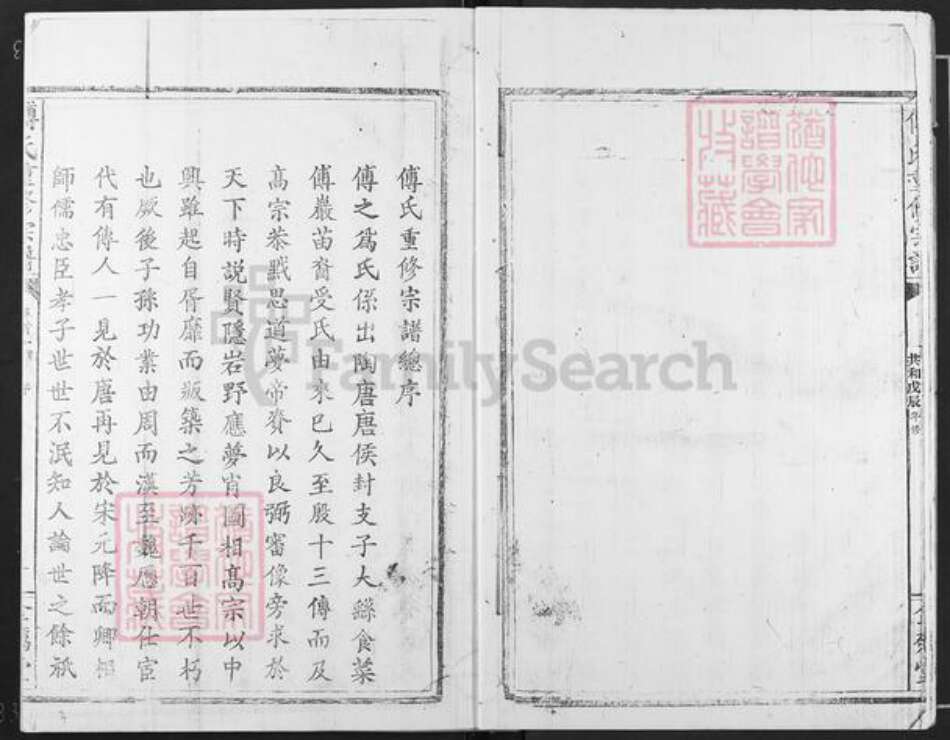 傅氏重修宗譜
共和戊辰年修
猶他家
譜學會
收藏
傅氏重修宗譜總序
傅之爲氏係出陶唐唐侯封支子大繇食菜
傅巖苗裔受氏由來已久至殷十三傳而及
高宗恭默思道夢帝賚以良弼審像旁求於
天下時説賢隱岩野應夢肖圖相高宗以中
興雖起自胥靡而版築之芳跡千百世不朽
也厥後子孫功業由周而漢至魏歷朝仕宦
代有傳人一見於唐再見於宋元降而卿相
師儒忠臣孝子世世不泯知人論世之餘祇
傅氏重修宗譜
猶他家
譜學會
收藏
FamilySearch